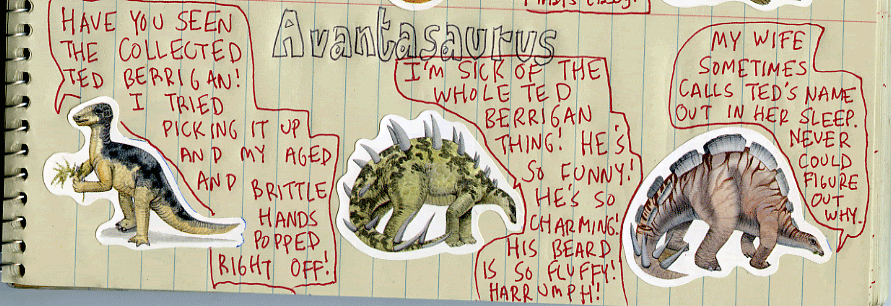 Avantasaurus
HAVE YOU SEEN
THE COLLECTED
TED BERRIGAN!
I TRIED
PICKING IT UP
AND MY AGED
AND BRITTLE
HANDS
POPPED
RIGHT OFF!
I'M SICK OF THE
WHOLE TED
BERRIGAN
THING! HE'S
SO FUNNY!
HE'S SO
CHARMING!
HIS BEARD
IS SO FLUFFY!
HARRUMPH!
MY WIFE
SOMETIMES
CALLS TED'S NAME
OUT IN HER SLEEP.
NEVER
COULD
FIGURE
OUT
WHY.